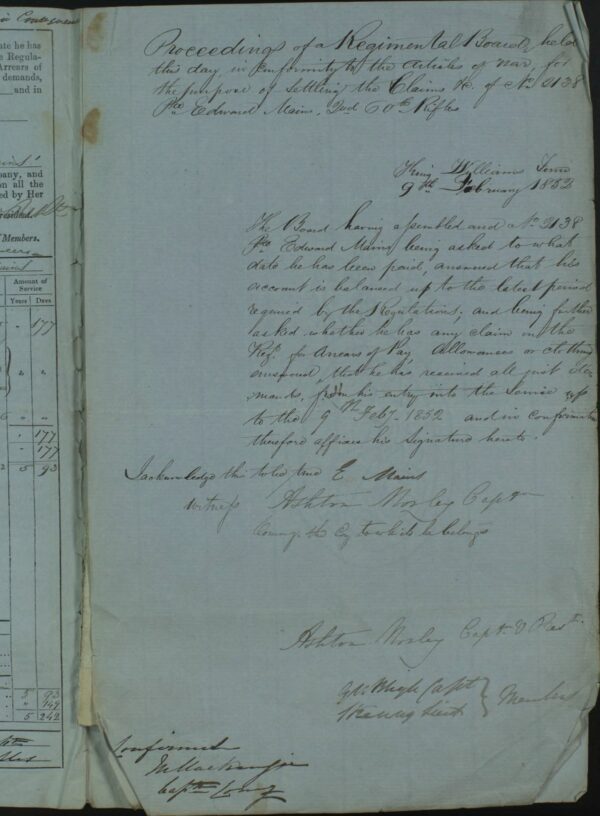 ate he has
e Regula-
Arrears of
demands,
and in
pany, and
on all the
ed by Her
resident.
Members.
Amount of
Service
Years Days
177
177
177
5 93
5 93
149
5 242
Proceedings of a Regimental Board, held
this day, in Conformity to the Articles of War, for
the purpose of Settling the Claims &c. of No. 2138
Pte Edward Mains, 2nd 60th Rifles
King Williams Town
9th February 1852
The Board having assembled and No. 2138
Pte Edward Mains being asked to what
date he has been paid, answered that his
account is balanced up to the latest period
required by the Regulations, and being further
asked whether he has any claim on the
Regt. for Arrears of Pay, Allowances or Clothing
answered, that he has received all just de-
mands, from his entry into the Service up
to the 9th Feby. 1852 and in confirmation
thereof affixes his Signature hereto.
I acknowledge this to be true E Mains
Witness Ashton Mosley Captn
Commg. the Coy to which he belongs
Ashton Mosley Captn & Prest
Capt
Lieut } Members
Confirmed
Captn Comg